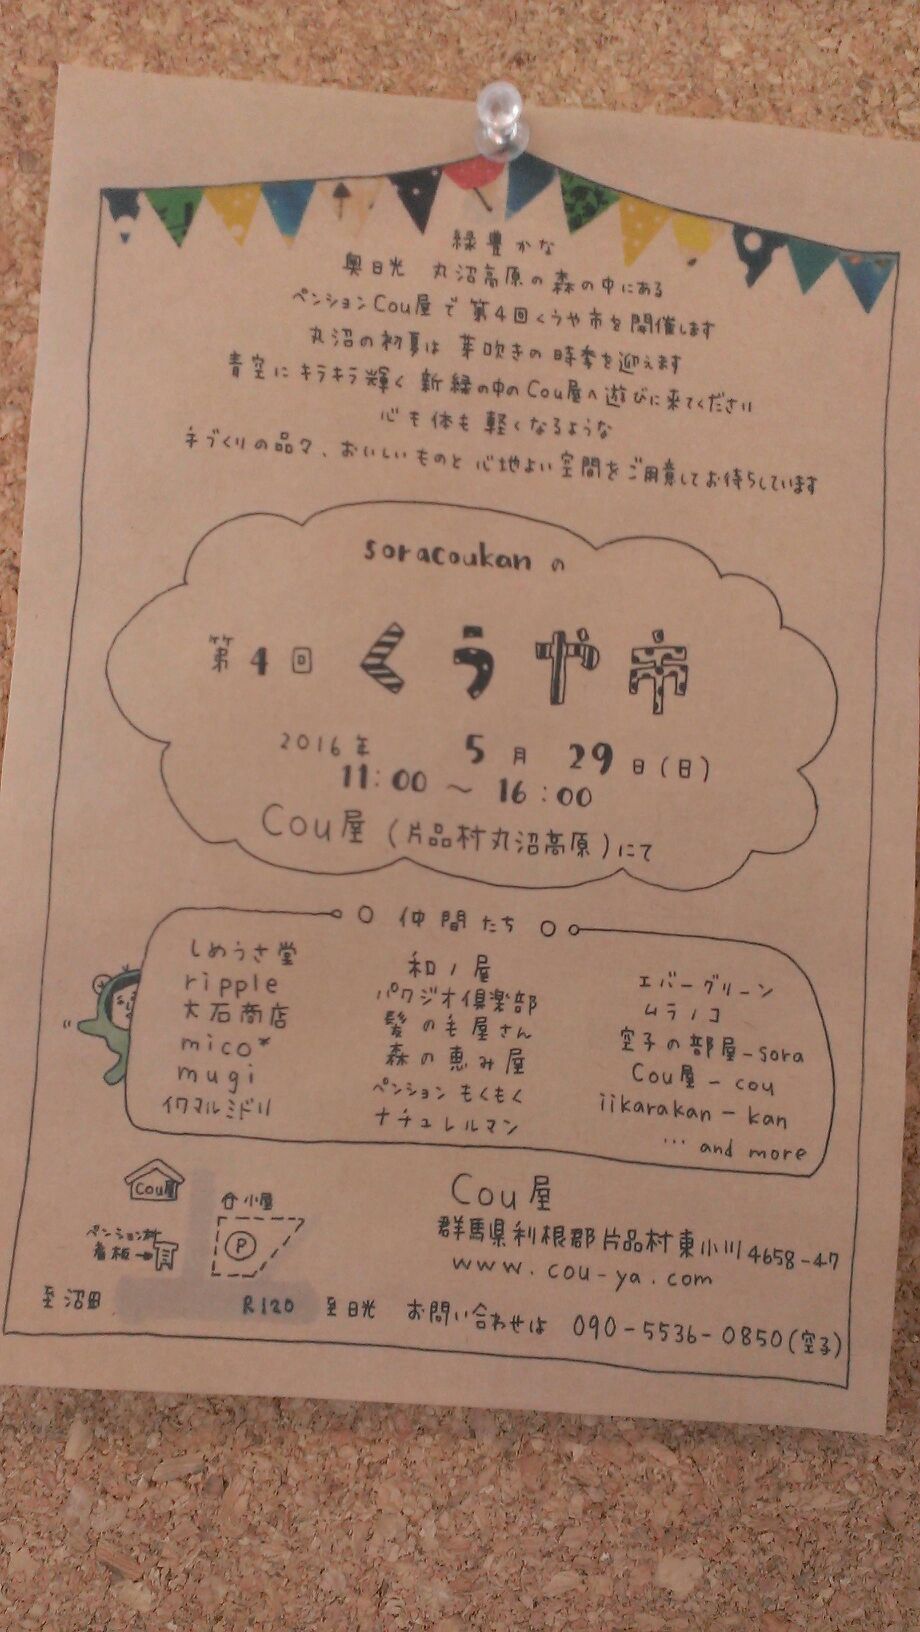 緑豊かな
奥日光 丸沼高原の森の中にある
ペンションCou屋で第4回くうや市を開催します
丸沼の初夏は 芽吹きの時季を迎えます
青空にキラキラ輝く新緑の中のCou屋へ遊びに来てください
心も体も軽くなるような
手づくりの品々、おいしいものと心地よい空間をご用意してお待ちしています
soracoukanの
第4回 くうや市
2016年 5月 29日(日)
11:00 〜 16:00
Cou屋(片品村丸沼高原)にて
仲間たち
しめうさ堂
ripple
大石商店
mico*
mugi
イワマルミドリ
和ノ屋
パワジオ倶楽部
髪の毛屋さん
森の恵み屋
ペンションもくもく
ナチュレルマン
エバーグリーン
ムラノコ
空子の部屋-sora
Cou屋-cou
iikarakan-kan
… and more
Cou屋
小屋
ペンション村
看板→
P
至沼田
R120 至日光
Cou屋
群馬県利根郡片品村東小川4658-47
www.cou-ya.com
お問い合わせは 090-5536-0850(空子)